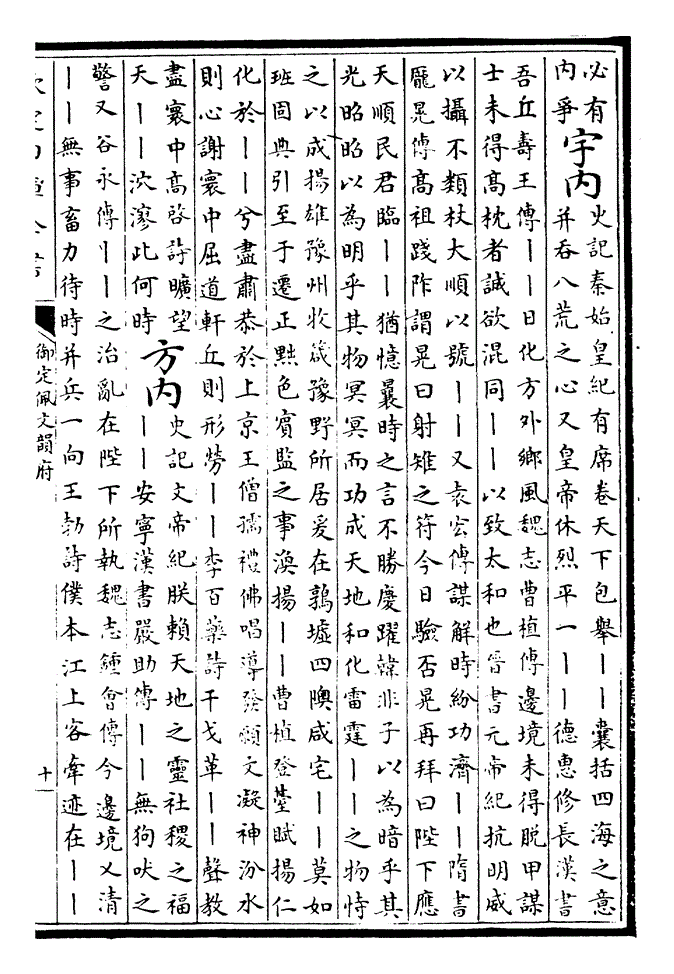 必有
內爭
宇內
史記秦始皇紀有席卷天下包舉丨丨囊括四海之意
并吞八荒之心又皇帝休烈平一丨丨德惠修長漢書
吾丘壽王傳丨丨日化方外鄉風魏志曹植傳邊境未得脫甲謀
士未得高枕者誠欲混同丨丨以致太和也晉書元帝紀抗明威
以攝不類杖大順以號丨丨又袁宏傳謀解時紛功濟丨丨隋書
龎晃傳高祖踐阼謂晃曰射雉之符今日驗否晃再拜曰陛下應
天順民君臨丨丨猶憶曩時之言不勝慶躍韓非子以為暗乎其
光昭昭以為明乎其物冥冥而功成天地和化雷霆丨丨之物恃
之以成揚雄豫州牧箴豫野所居爰在鶉墟四隩咸宅丨丨莫如
班固典引至于遷正黜色賓監之事渙揚丨丨曹植登臺賦揚仁
化於丨丨兮盡肅恭於上京王僧孺禮佛唱導發願文凝神汾水
則心謝寰中屈道軒丘則形勞丨丨李百藥詩干戈革丨丨聲教
盡寰中高啓詩曠望
天丨丨泬寥此何時
方內
史記文帝紀朕賴天地之靈社稷之福
丨丨安寧漢書嚴助傳丨丨無狗吠之
警又谷永傳丨丨之治亂在陛下所執魏志鍾會傳今邊境乂清
丨丨無事畜力待時并兵一向王勃詩僕本江上客牽迹在丨丨
欽定四庫全書
御定佩文韻府
十